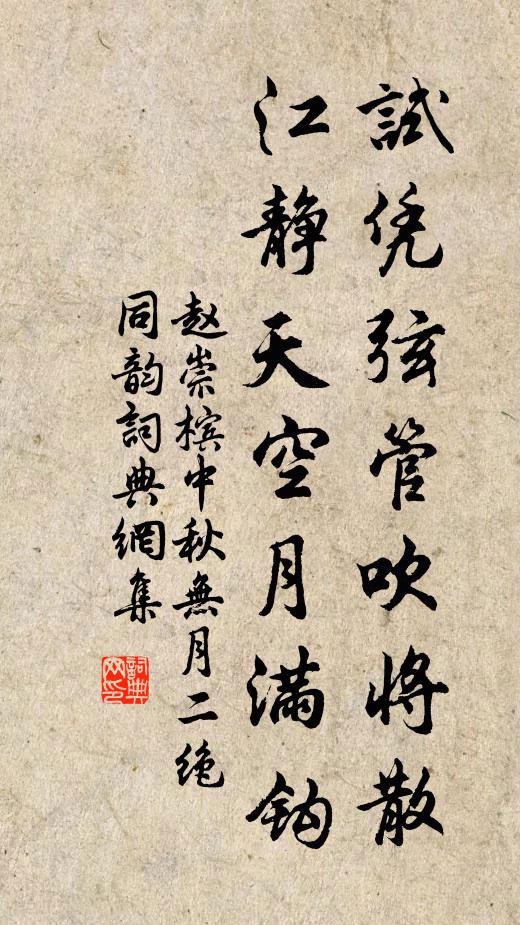 試凭弦管吹將散
江静天空月满鈎
赵崇槟中秋無月二绝
同韵詞典網集
詞典网印